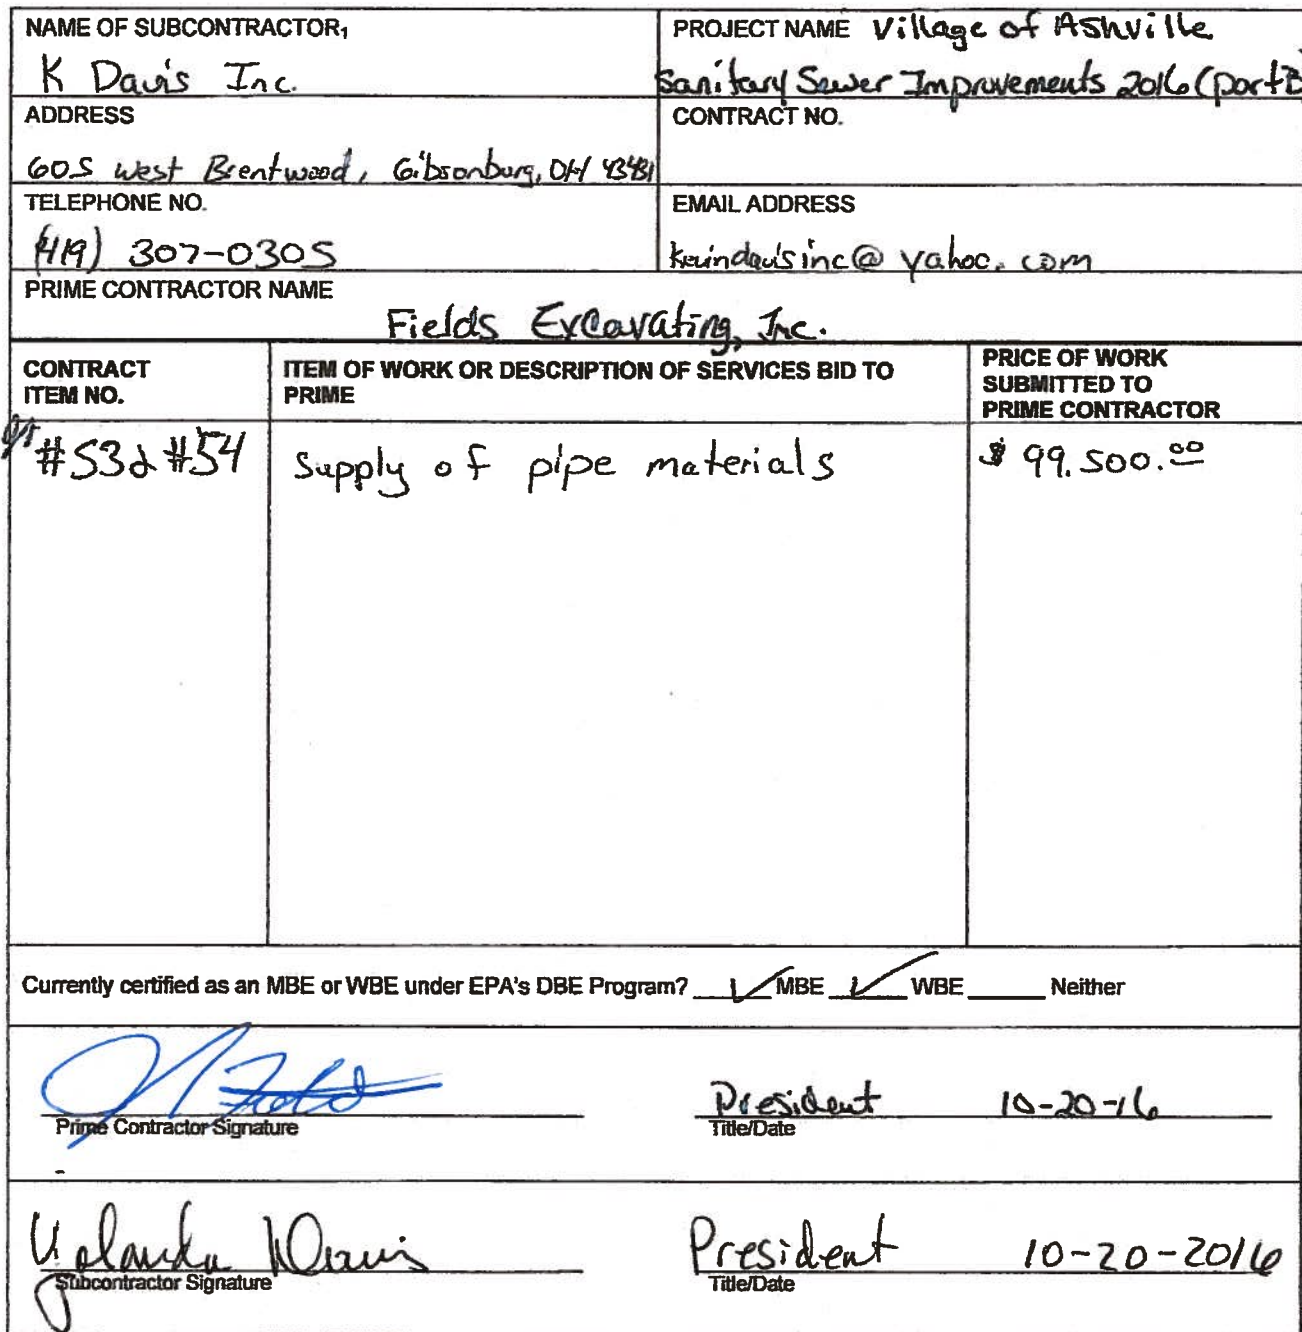 NAME OF SUBCONTRACTOR1
K Davis Inc.
PROJECT NAME Village of Ashville
Sanitary Sewer Improvements 2016 (part B
ADDRESS
605 West Brentwood, Gibsonburg, OH 43431
CONTRACT NO.
TELEPHONE NO.
(419) 307-0305
EMAIL ADDRESS
kevindavisinc@yahoo.com
PRIME CONTRACTOR NAME
Fields Excavating, Inc.
CONTRACT
ITEM NO.
ITEM OF WORK OR DESCRIPTION OF SERVICES BID TO
PRIME
PRICE OF WORK
SUBMITTED TO
PRIME CONTRACTOR
#53 & #54
Supply of pipe materials
$ 99.500.00
Currently certified as an MBE or WBE under EPA's DBE Program? ✓ MBE ✓ WBE ______ Neither
President 10-20-16
Prime Contractor Signature
Title/Date
Yolanda Davis
President 10-20-2016
Subcontractor Signature
Title/Date